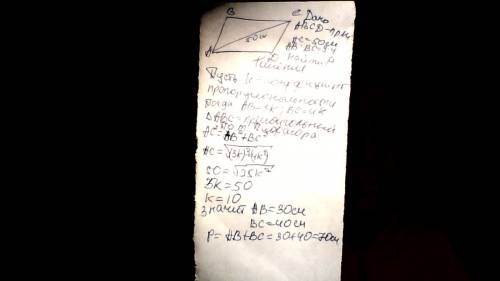 B
C Дано
ABCD-прям.
50см
AC=50см
A
AB:BC=3:4
D Найти P
Решение
Пусть k-коэффициент
пропорциональности
Тогда AB=3k; BC=4k
ΔABC-прямоугольный
По т. Пифагора
AC²=AB²+BC²
AC=√(3k)²+(4k)²
50=√25k²
5k=50
k=10
Значит AB=30см
BC=40см
P=AB+BC=30+40=70см